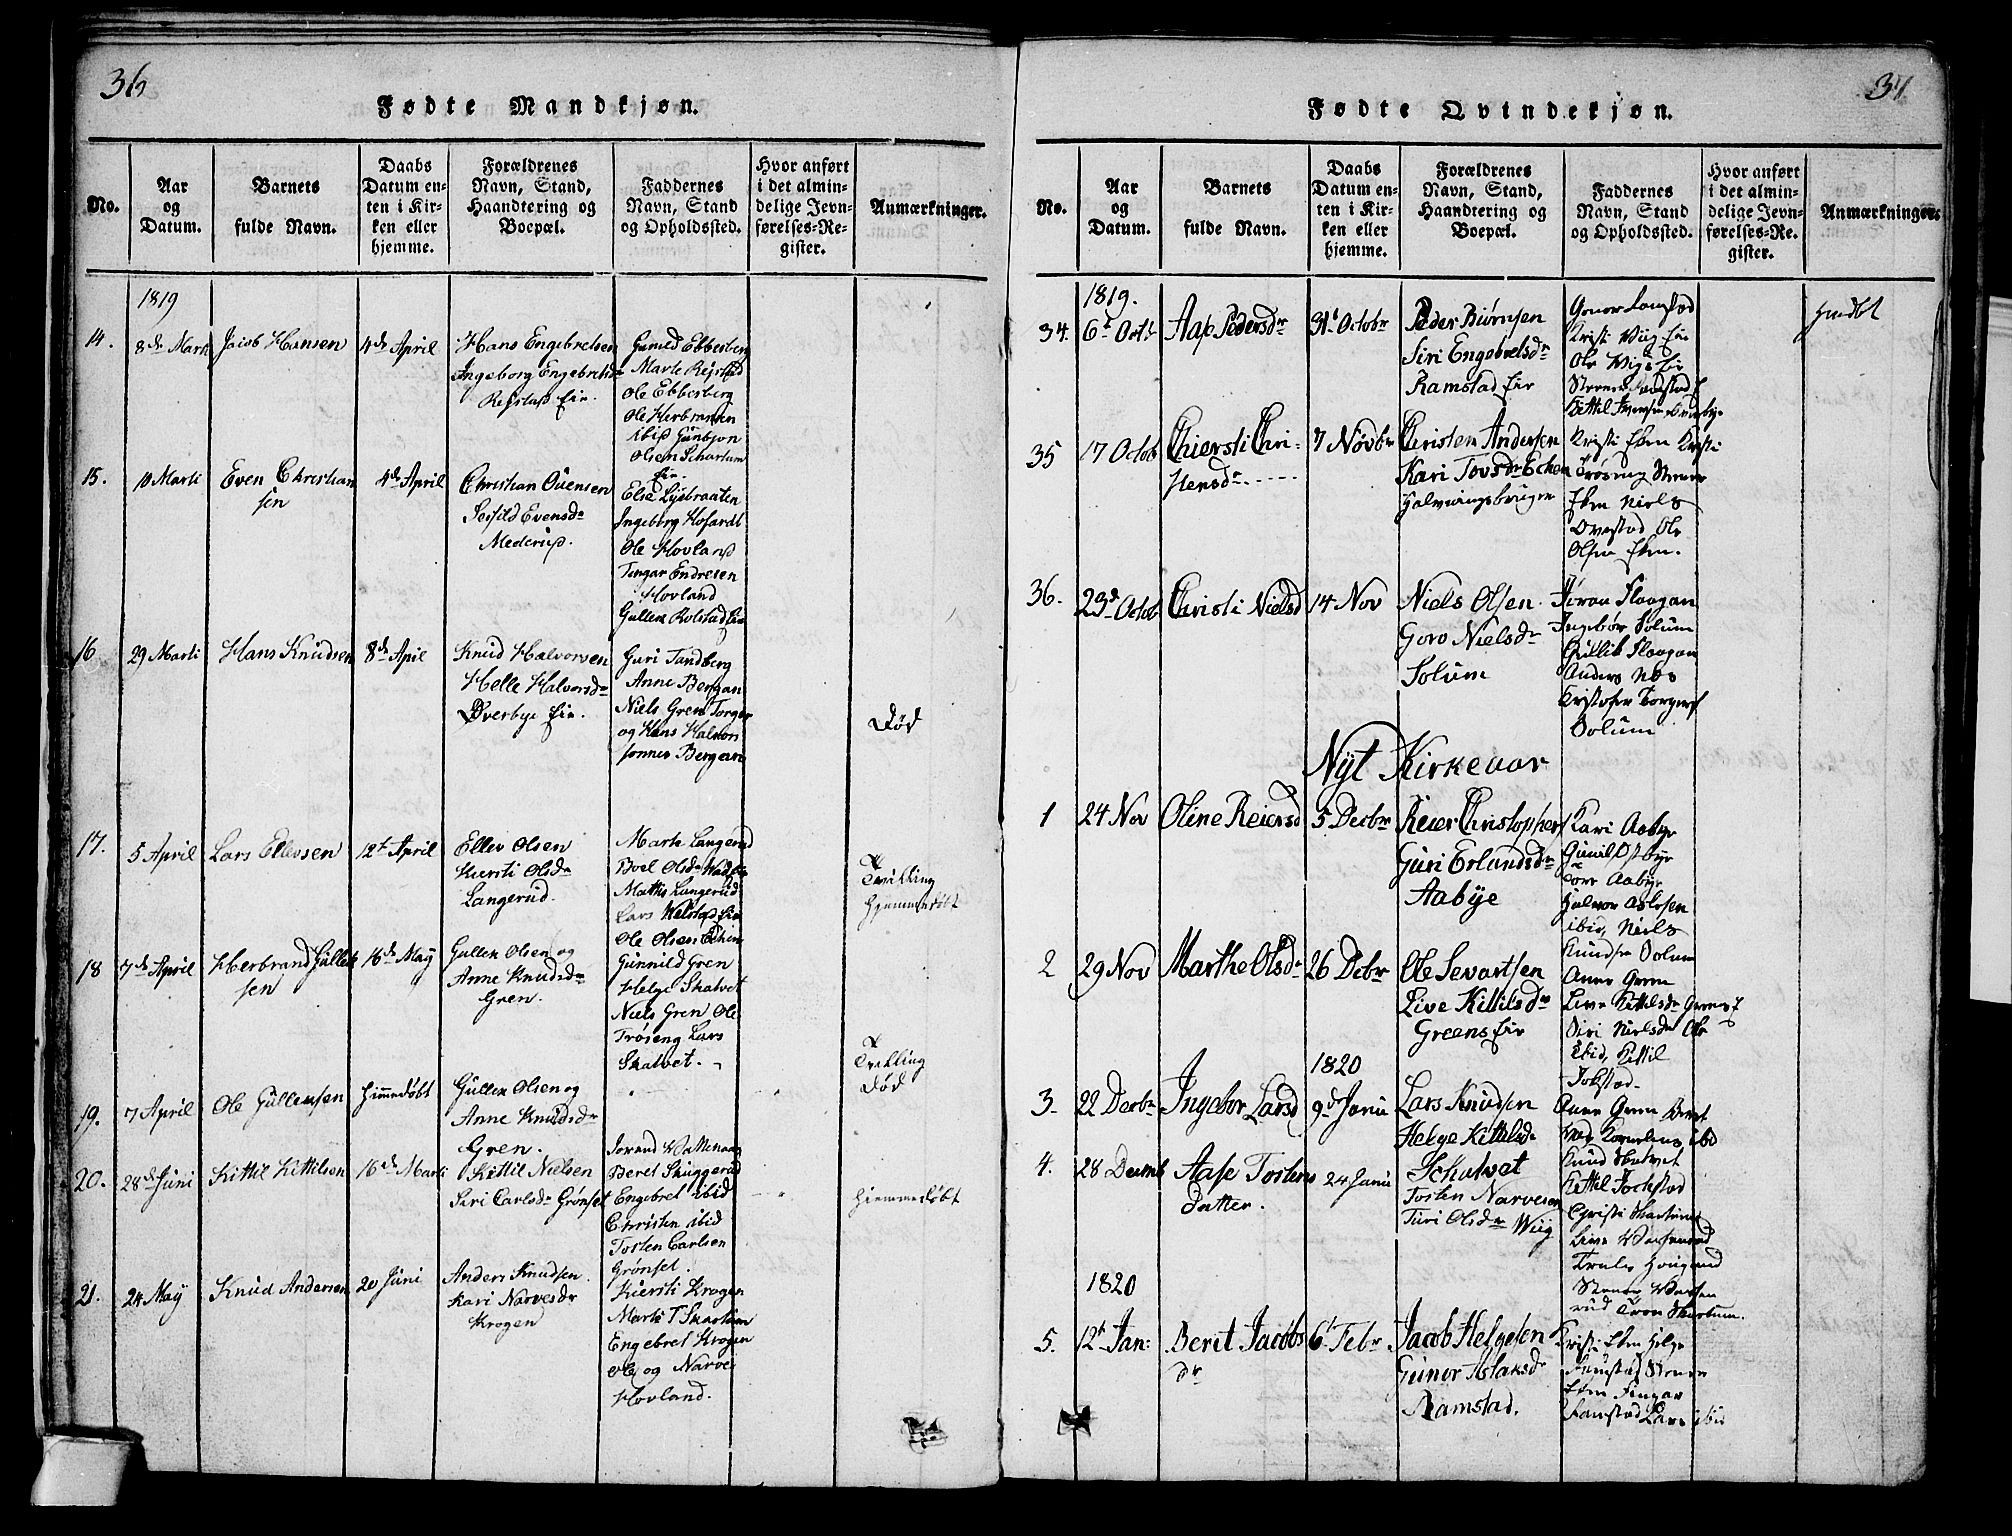 36
Fødte Mandkjøn.
No.
Aar og Datum.
Barnets fulde Navn.
Daabs Datum enten i Kirken eller hjemme.
Forældrenes Navn, Stand, Haandtering og Boepæl.
Faddernes Navn, Stand og Opholdssted.
Hvor anført i det almindelige Jevnførelses-Register.
Anmærkninger.
1819
14.
8de Marti
Jacob Hansen
4de April
Hans Engebretsen
Ingeborg Engebretsdr
Eir.
Gunild Ebbesberg
Marte
Ole Ebbesberg
Ole Herbransen
ibid Gunbjon
Olsen Schartum
Eir
15.
10 Marti
Even Christian
sen
4de April
Christian Evensen
Evensdr
Mederud.
Else Lysbraaten
Ingeborg Hofardt
Ole Hovland
Tingar Endresen
Hovland
Gullek Rolstad Eir
16
29 Marti
Hans Knudsen
8de April
Knud Halvorsen
Helle Halvorsdr
Øverbye Eir.
Guri Tandberg
Anne Bergan
Niels Gren Torger
og Hans Halvor
sønner Bergan
Død
17.
5 April
Lars Ellevsen
12te April
Ellev Olsen
Kiersti Olsdr
Langerud.
Marte Langerud
Boel Olsdr
Mattis Langerud
Lars Eir
Ole Olsen
Tvilling
Hjemmedøbt
18
7de April
Herbrand Gullek
sen
16de May
Gullek Olsen og
Anne Knudsdr
Gren.
Gunnild Gren
Helge Skatvet
Niels Gren Ole
Trøseng Lars
Skatvet.
Tvilling
Død
19.
7 April
Ole Gulleksen
Himmedøbt
Gullek Olsen og
Anne Knudsdr
Gren.
20.
28de Juni
Kittil Kittilsen
16de Marti
Kittil Nielsen
Siri Carlsdr Grønset
Jorand
Beret Skuggerud
Engebret ibid
Christen ibid
Tosten Carlsen
Grønset.
Hiemmedøbt
21.
24 May
Knud Andersen
20 Juni
Anders Knudsen
Kari Narvesdr
Krogen
Kiersti Krogen
Marte T Skartum
Engebret Krogen
Ole og Narve
Hovland.
37
Fødte Qvindekjøn.
No.
Aar og Datum.
Barnets fulde Navn.
Daabs Datum enten i Kirken eller hjemme.
Forældrenes Navn, Stand, Haandtering og Boepæl.
Faddernes Navn, Stand og Opholdssted.
Hvor anført i det almindelige Jevnførelses-Register.
Anmærkninger.
1819.
34.
6te Octb
Aase Pedersdr
31te Octobr
Peder Biørnsen
Siri Engebretsdr
Ramstad Eir
Gonor Ramstad
Kristi Wiig Eir
Ole Wigs Eir
35
17 Octob
Chiersti Chri-
stensdr
7 Novbr
Christen Andersen
Kari Tovsdr Echen
Halvvingsbrugen
Kristi Eken Kristi
Trøseng Stener
Eken Niels
Ovestad Ole
Olsen Eken.
36.
23de Octob
Christi Nielsd
14 Nov
Niels Olsen
Goro Nielsdr
Solum
Jøran Skogan
Ingebør Solum
Gullik Skogan
Anders
Kristofer Torgers
Solum
Nyt Kirkeaar
1
24 Nov
Oline Reiersd
5 Decbr
Reier Christophers
Guri Erlandsdr
Aabye
Kari Aabye
Gunil Ostbye
Tore Aabye
Halvor Aslesen
ibid, Niels
Knudsen Solum
2
29 Nov
Marthe Olsdr
26 Debr
Ole Sevartsen
Live Kittilsdr
Greens Eir
Anne Green
Live Kittelsdr Greens E
Siri Nielsdr Ole
ibid, Kittil
Jokstad.
1820
3.
22 Decbr
Ingebor Larsd
9de Janu
Lars Knudsen
Helge Kittelsdr
Schatvet
Anne Green Beret
ibid
Knud Skatvet
Kittil Jockstad
4.
28 Decmb
Aase Tostens
Datter.
24 Janu
Tosten Narvesen
Turi Olsdr Wiig
Christi Skartum
Live
Truls Hougerud
Tron Skartum.
1820
5.
12te Jan:
Berit Jacobs
dr
6te Febr
Jacob Helgesen
Gunor Aslaksdr
Ramstad.
Kristi Eken Helge
Ramstad Stener
Eken Tingar
Ramstad Lars ibid